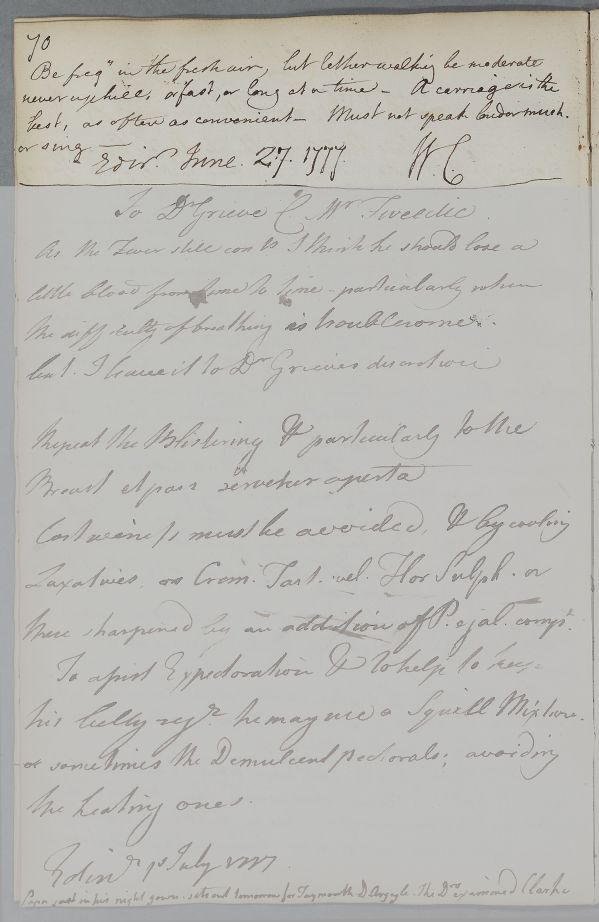 70
Be freqy in the fresh air, but let her walking be moderate
never uphill, or fast, or long at a time - A carriage is the
best, as often as convenient - Must not speak loud or much.
or sing -
Edinr. June. 27. 1777. W C.
To Dr Grieve C. Mr. Tweedie
As the Fever still conts I think he should lose a
little blood from time to time - particularly when
the difficulty of breathing is troublesome.
but I leave it to Dr Grieves discretion
Repeat the Blistering & particularly to the
Breast et pars servetur aperta
Costiveness must be avoided, & by cooling
Laxatives, as Crem. Tart. vel. Flor Sulph. or
these sharpened by an addition of P. e jal. compt.
To assist Expectoration & to help to keep
his belly regr. he may use a Squill Mixture.
or sometimes the Demulcent pectorals; avoiding
the heating ones.
Edinr 1st July 1777
in his night gown. sets out tomorrow for Taymouth D Argyle. The Drs examined Clarke